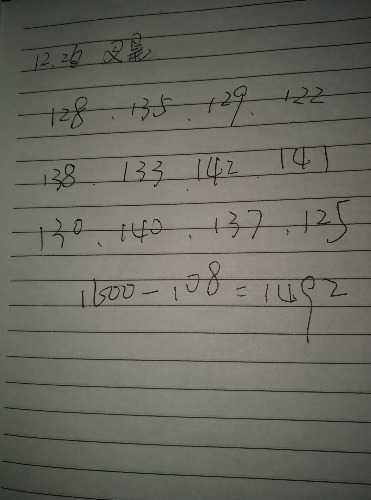 12.26
128 . 135 . 129 . 122
138 . 133 . 142 . 141
130 . 140 . 137 . 125
1600-108=1492